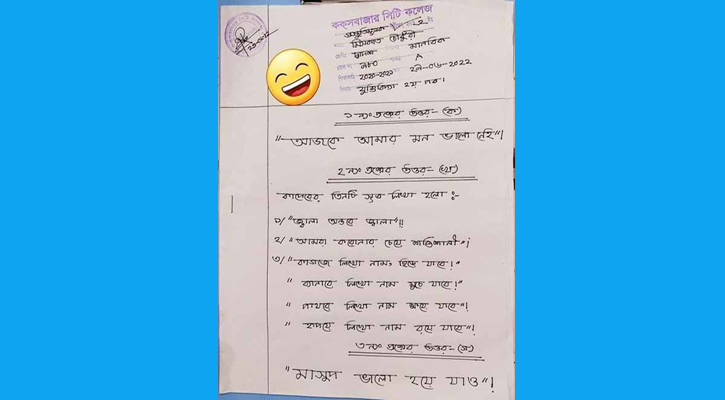 কক্সবাজার সিটি কলেজ
মানবিক
A
২০২০-২০২১
যুক্তিবিদ্যা ২য় পত্র।
১ নং প্রশ্নের উত্তর:- (ক)
"আজকে আমার মন ভালো নেই"।
২ নং প্রশ্নের উত্তর:- (খ)
তিনটি সূত্র লিখা হলো :-
১/ "জ্বালা অন্তরে জ্বালা"!!
২/ "আমরা করোনার চেয়ে শক্তিশালী"।
৩/ "কাগজে লিখো নাম, ছিঁড়ে যাবে।"
" ব্যানারে লিখো নাম মুছে যাবে।"
" পাথরে লিখো নাম ক্ষয়ে যাবে"।
" হৃদয়ে লিখো নাম রয়ে যাবে"।
৩ নং প্রশ্নের উত্তর:- (গ)
"মাসুদ ভালো হয়ে যাও"।